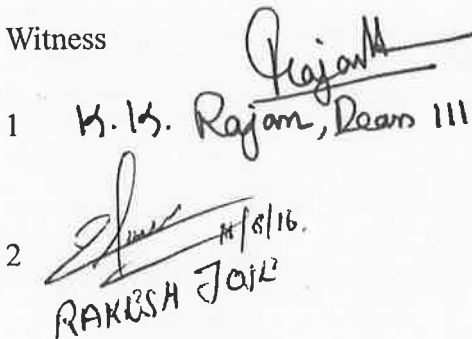 Witness
Rajan
1 K. K. Rajan, Dean III
2
11/8/16.
RAKESH